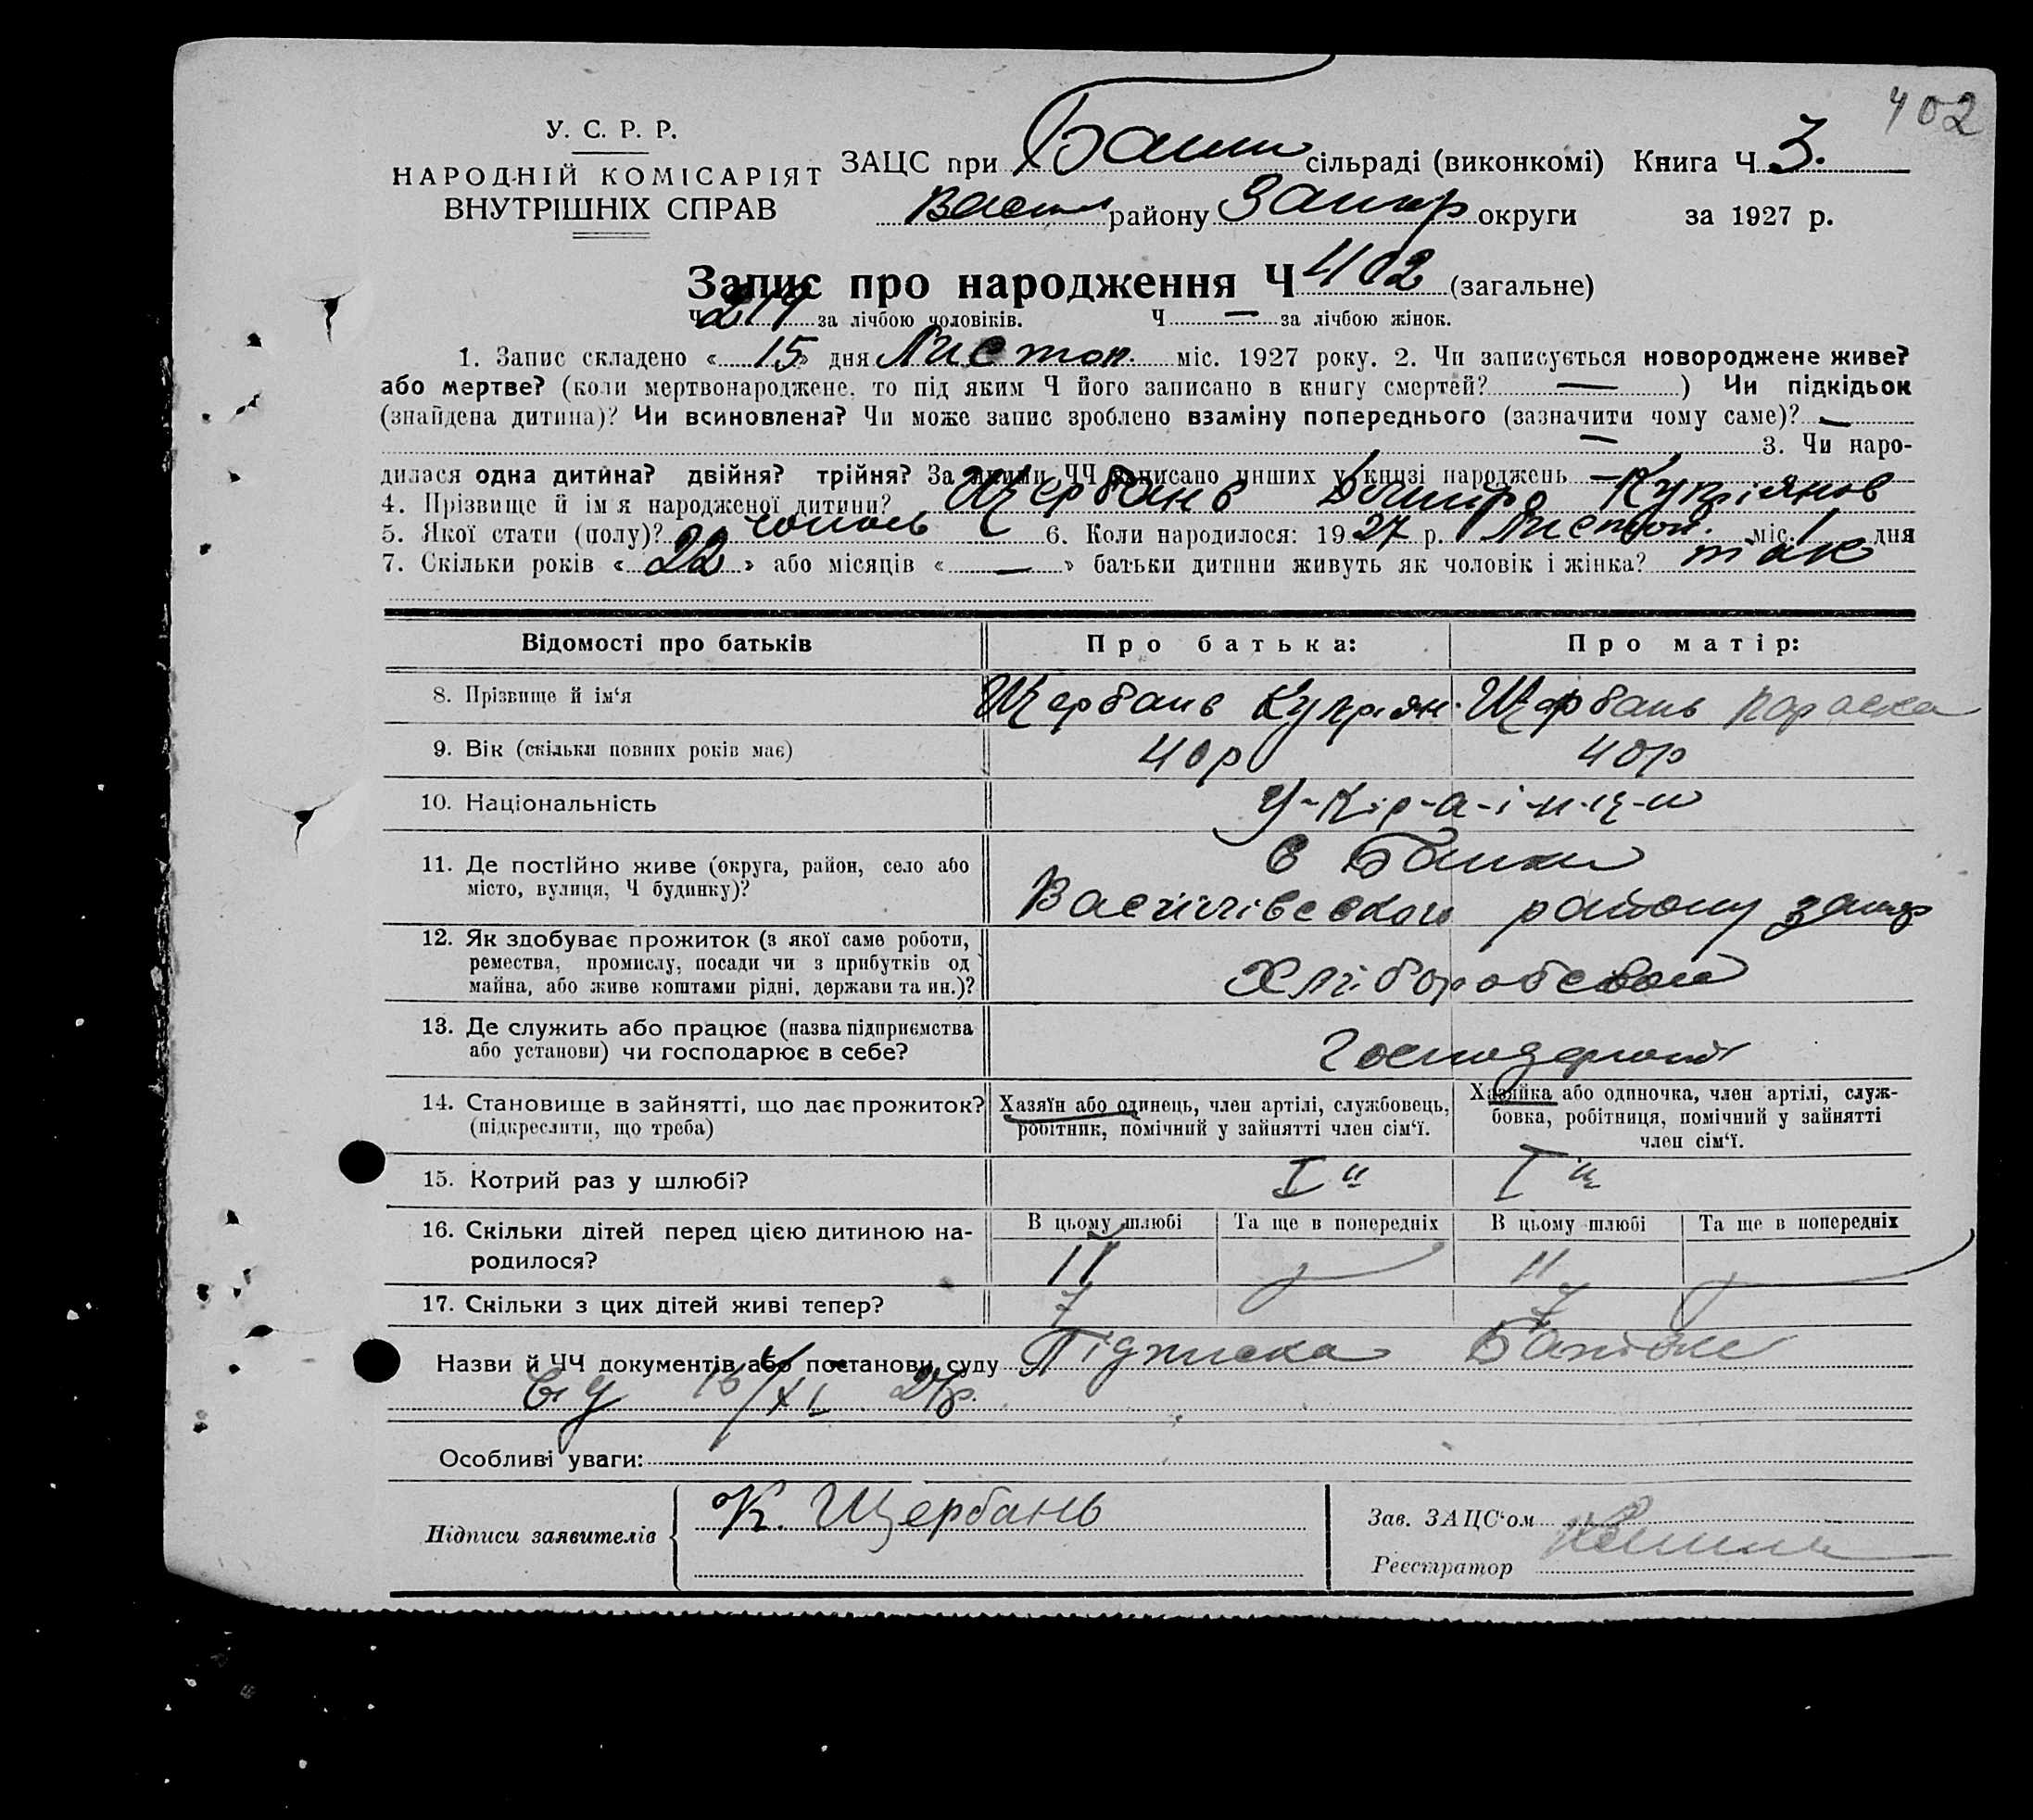 402
У. С. Р. Р.
НАРОДНІЙ КОМІСАРІЯТ
ВНУТРІШНІХ СПРАВ
ЗАЦС при сільраді (виконкомі) Книга Ч 3.
Васил району Запор округи за 1927 р.
Запис про народження Ч 402 (загальне)
Ч за лічбою чоловіків. Ч — за лічбою жінок.
1. Запис складено « 15 » дня Листоп. міс. 1927 року. 2. Чи записується новороджене живе?
або мертве? (коли мертвонароджене, то під яким Ч його записано в книгу смертей? — ) Чи підкідьок
(знайдена дитина)? Чи всиновлена? Чи може запис зроблено взаміну попереднього (зазначити чому саме)? —
— 3. Чи наро-
дилася одна дитина? двійня? трійня? За якими ЧЧ записано инших у книзі народжень —
4. Прізвище й ім'я народженої дитини? Щербань Дмитро Купріянов
5. Якої стати (полу)? 6. Коли народилося: 1927 р. Листоп. міс. 1 дня
7. Скільки років « 22 » або місяців « — » батьки дитини живуть як чоловік і жінка? так
Відомості про батьків Про батька: Про матір:
8. Прізвище й ім'я Щербань Купріян. Щербань Параска
9. Вік (скільки повних років має) 40р 40р
10. Національність У-к-р-а-ї-н-ц-и
11. Де постійно живе (округа, район, село або
місто, вулиця, Ч будинку)?
Василівського району Запор
12. Як здобуває прожиток (з якої саме роботи,
ремества, промислу, посади чи з прибутків од
майна, або живе коштами рідні, держави та ин.)?
Хліборобством
13. Де служить або працює (назва підприємства
або установи) чи господарює в себе?
14. Становище в зайнятті, що дає прожиток?
(підкреслити, що треба)
Хазяїн або одинець, член артілі, службовець,
робітник, помічний у зайнятті член сім'ї.
Хазяйка або одиночка, член артілі, служ-
бовка, робітниця, помічний у зайнятті
член сім'ї.
15. Котрий раз у шлюбі? I й I й
16. Скільки дітей перед цією дитиною на-
родилося?
В цьому шлюбі Та ще в попередніх В цьому шлюбі Та ще в попередніх
11 11
17. Скільки з цих дітей живі тепер? 7 7
Назви й ЧЧ документів або постанови суду Підписка
від 15/XI 27р.
Особливі уваги:
Підписи заявителів К. Щербань
Зав. ЗАЦС'ом
Реєстратор